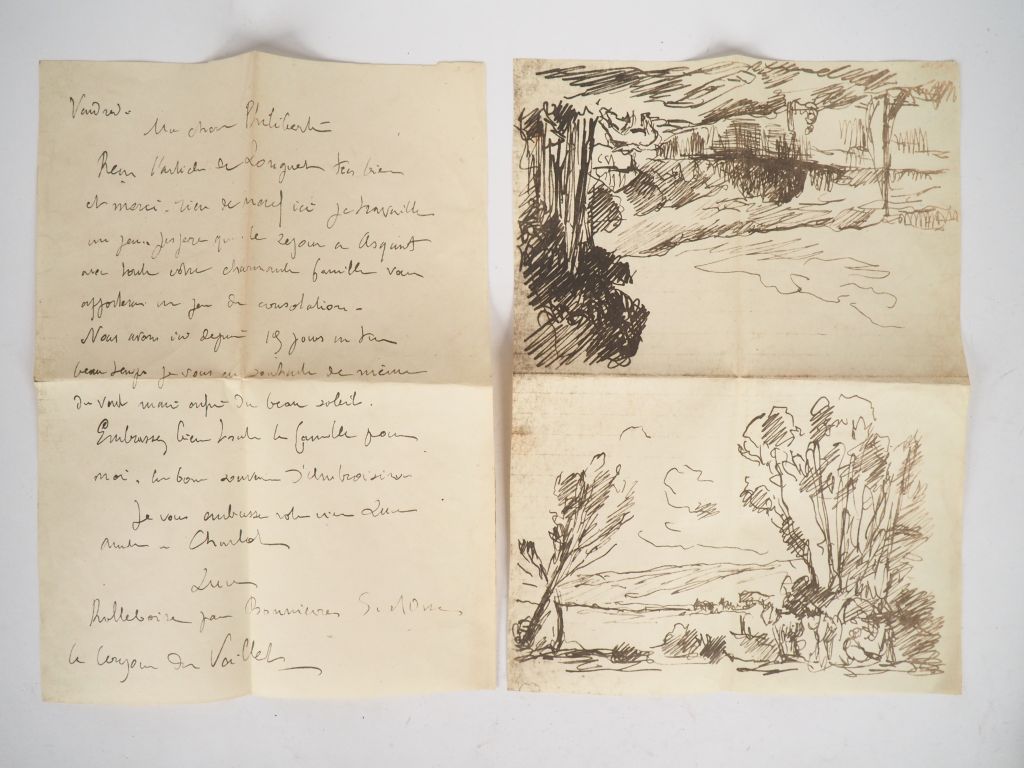 Vendred.
Ma chère Philiberte
Reçu l'article de Longuet très bien
et merci. rien de neuf ici je travaille
un peu. j'espère que le séjour a Asquint
avec toute votre charmante famille vous
apportera un peu de consolation.
Nous avons ici depuis 15 jours un
beau temps je vous en souhaite de même
du vent mais du beau soleil.
Embrassez bien toute la famille pour
moi, un bon souvenir d'Ambroisine
Je vous embrasse votre vieux Luce
Charlot
Luce
Rolleboise par Bonnières S. et Oise